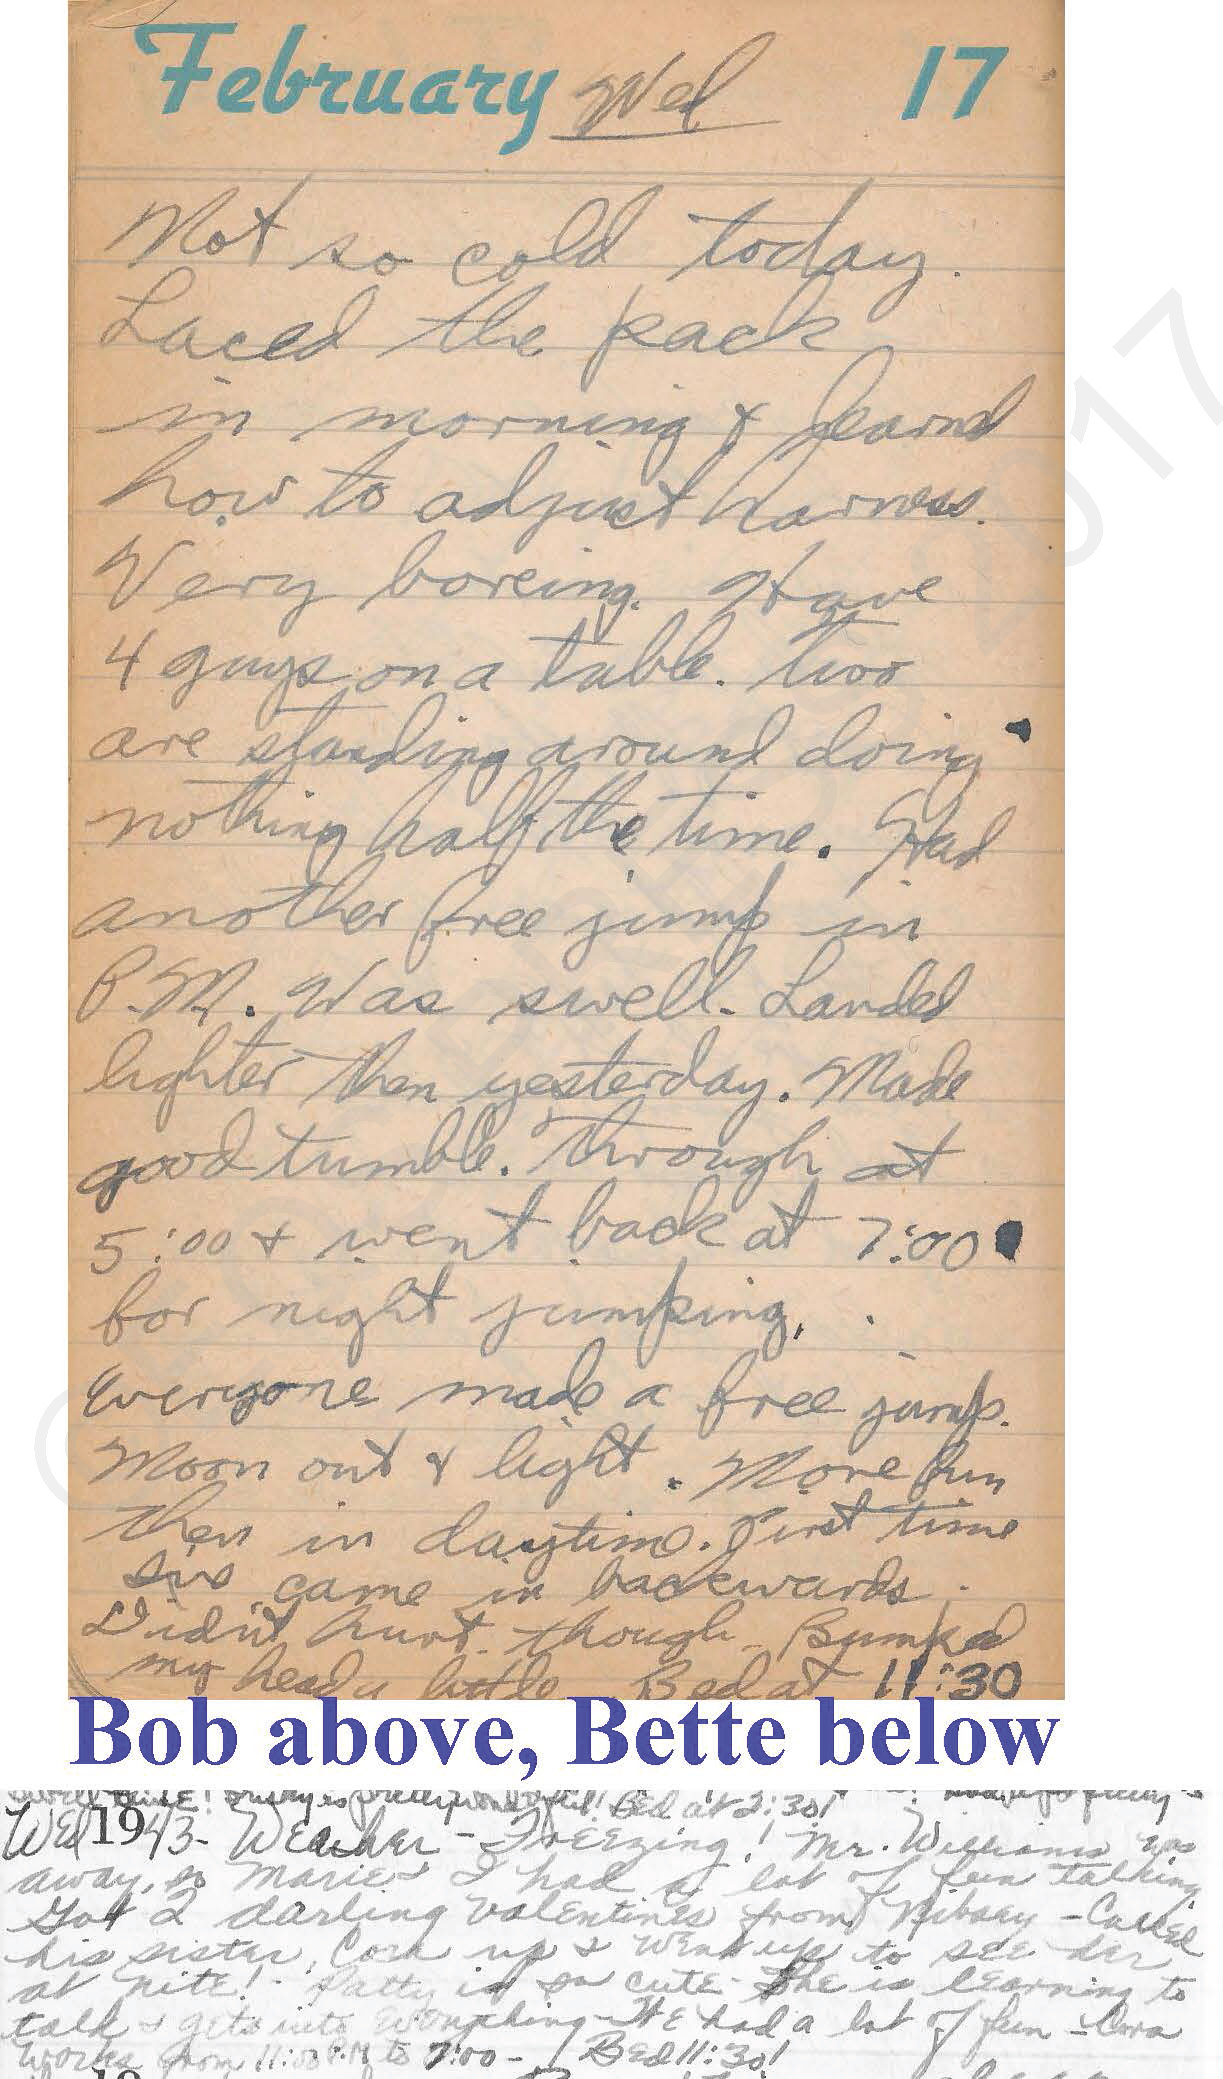 February Wed 17
Not so cold today.
Laced the pack
in morning & learnd
how to adjust harness.
Very boreing. Have
4 guys on a table. two
are standing around doing
nothing half the time. Had
another free jump in
P.M. Was swell. Landed
lighter then yesterday. Made
good tumble. Through at
5:00 & went back at 7:00
for night jumping.
Everyone made a free jump.
Moon out & light. More fun
then in daytime. First time
I've came in backwards.
Didn't hurt though. Bumped
my head a little. Bed at 11:30
Bob above, Bette below
Bed at 2:30!
Wed 1943 - Weather - Freezing! Mr. Williams was
away, so Marie & I had a lot of fun talking
Got 2 darling Valentines from - Called
his sister, Cora up & went up to see her
at nite! - Patty is so cute - She is learning to
talk & gets into everything - We had a lot of fun - Cora
works from 11:00 P.M to 7:00 - Bed 11:30!
19
2017